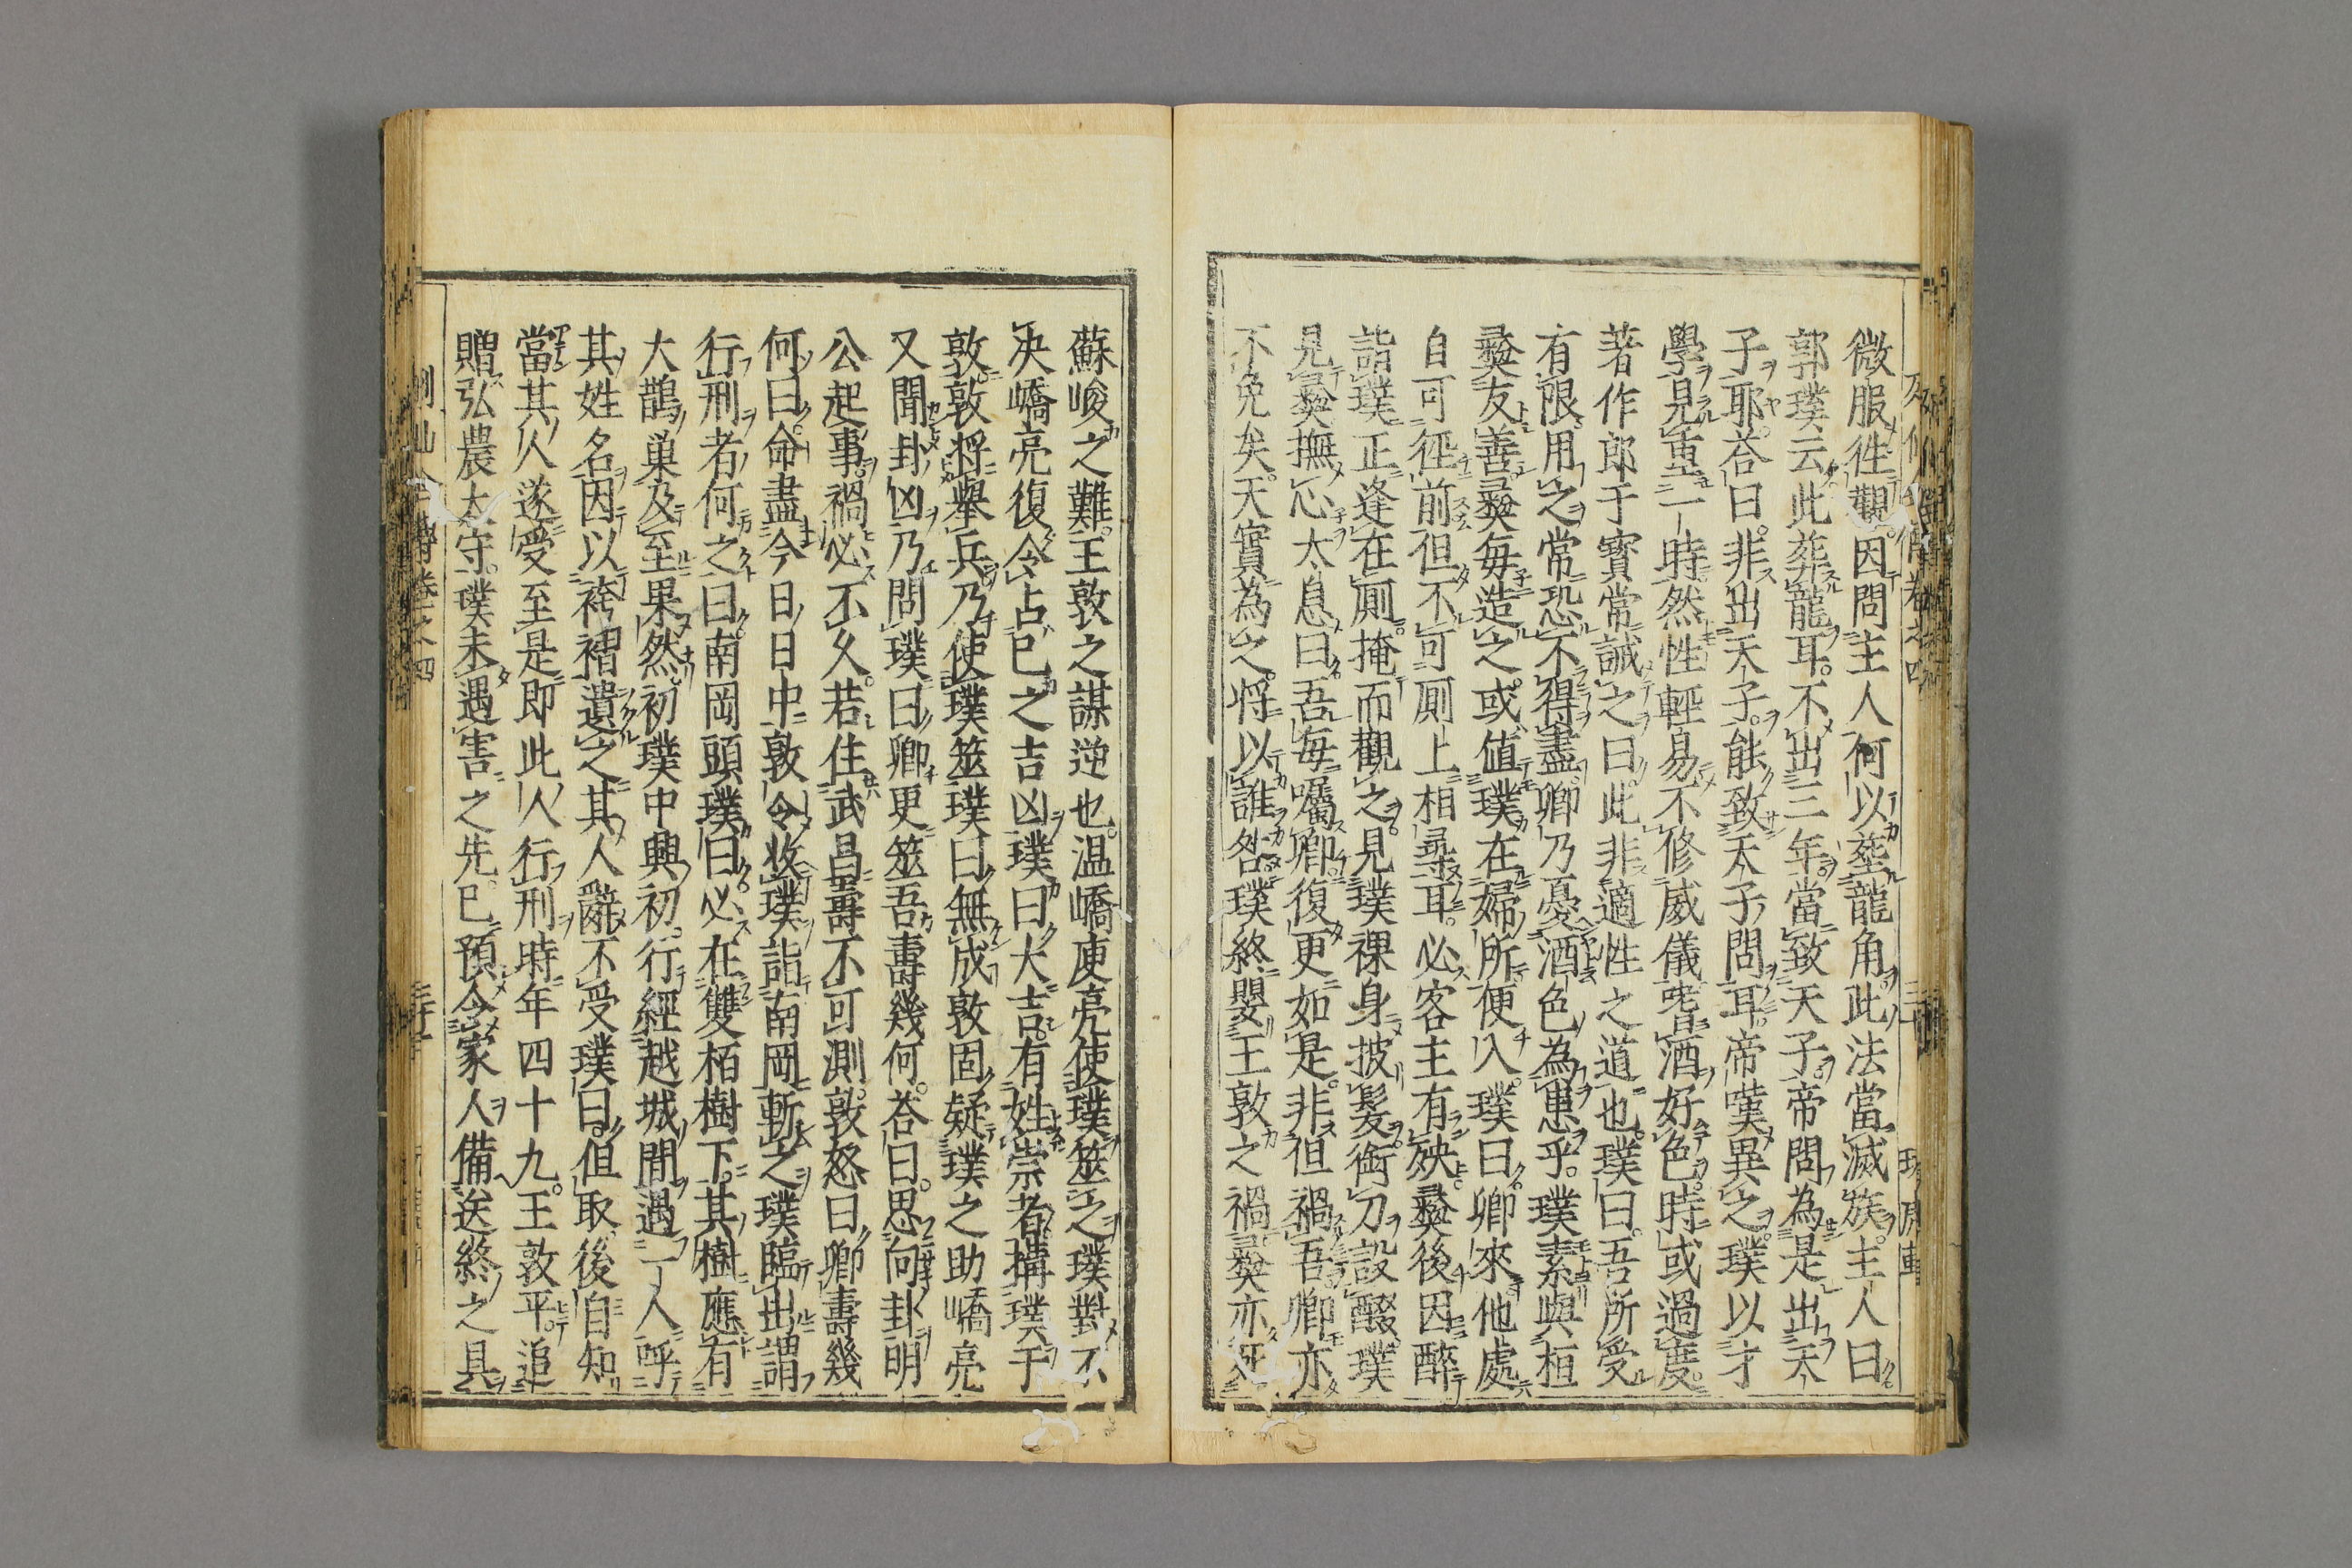 微服徃觀。因問主人何以塟龍角。此法當滅族。主人曰
郭璞云此葬龍耳。不出三年。當致天子。帝問為是出天
子耶。荅曰。非出天子。能致天子問耳。帝嘆異之。璞以才
學見重一時。然性輕易不修威儀嗜酒好色。時或過度。
著作郎于寳常誡之曰。此非適性之道也。璞曰。吾所受
有限。用之常恐不得盡。卿乃憂酒色為患乎。璞素與桓
彜友善。彜毎造之。或値璞在婦所便入。璞曰。卿來他處
自可徑前但不可厠上相尋耳。必客主有殃。彜後因醉
詣璞正逢在厠。掩而觀之。見璞裸身披髮銜刀設醊。璞
見彜撫心太息曰。吾毎囑卿復更如是。非但禍吾。卿亦
不免矣。天實為之。将以誰咎。璞終嬰王敦之禍。彜亦死
蘇峻之難。王敦之謀逆也。温嶠庾亮使璞筮之璞對不
决嶠亮復令占巳之吉凶。璞曰大吉。有姓崇者搆璞于
敦。敦将舉兵。乃使璞筮。璞曰無成。敦固疑璞之助嶠亮
又聞卦凶乃問璞曰。卿更筮吾壽幾何。荅曰。思向卦。明
公起事。禍必不久。若住武昌。壽不可測。敦怒曰卿壽幾
何。曰。命盡今日日中。敦令收璞詣南岡斬之。璞臨出謂
行刑者何之。曰。南岡頭。璞曰。必在雙栢樹下。其樹應有
大鵲巢。及至果然。初璞中興初。行經越城間遇一人呼
其姓名。因以袴褶遺之。其人辭不受璞曰。但取。後自知
當其人遂受至是。即此人行刑。時年四十九。王敦平。追
贈弘農太守。璞未遇害之先。巳預令家人備送終之具
卷之四